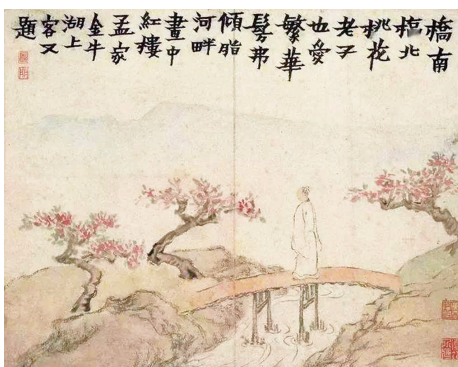 橋南
橋北
桃花
老子
也愛
繁華
髣弗
傾脂
河畔
畫中
紅樓
孟家
金牛
湖上
客又
題